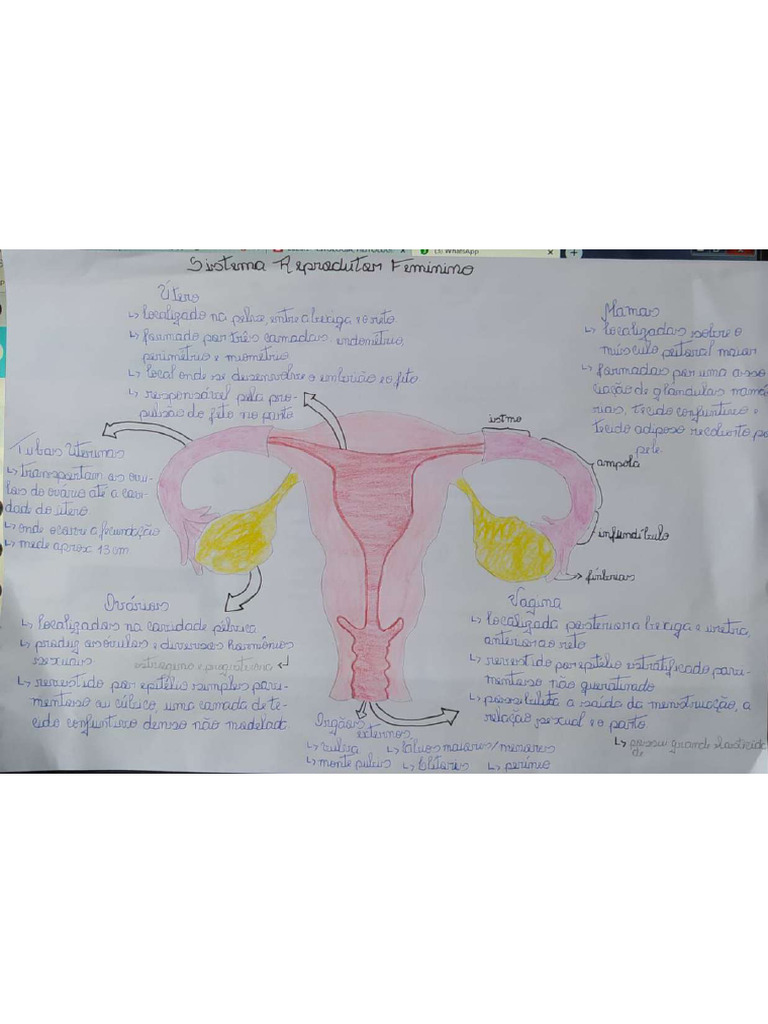 WhatsApp
Sistema Reprodutor Feminino
Útero
↳ localizado na pelve, entre a bexiga e o reto
↳ formado por três camadas: endométrio,
perimétrio e miométrio
↳ local onde se desenvolve o embrião e o feto
↳ responsável pela pro-
pulsão do feto no parto
Mamas
↳ localizadas sobre o
músculo peitoral maior
↳ formadas por uma asso
ciação de glândulas mamá
rias, tecido conjuntivo e
tecido adiposo recoberto po
pele
Tubas Uterinas
↳ transportam os óvu-
los do ovário até a cavi-
dade do útero.
↳ onde ocorre a fecundação
↳ mede aprox 13 cm
istmo
ampola
infundíbulo
fímbrias
Ovários
↳ localizados na cavidade pélvica
↳ produz os óvulos e diversos hormônios
sexuais
estrogeno e progesterona ↲
↳ revestido por epitélio simples pavi-
mentoso ou cúbico, uma camada de te-
cido conjuntivo denso não modelad.
Vagina
↳ localizada posterior a bexiga e uretra,
anterior ao reto
↳ revestido por epitélio estratificado pavi-
mentoso não queratinizado
↳ possibilita a saída da menstruação, a
relação sexual e o parto
↳ possui grande elasticida
de
Orgãos
externos
↳ vulva
↳ lábios maiores/menores
↳ monte pubis
↳ clitóris
↳ períneo